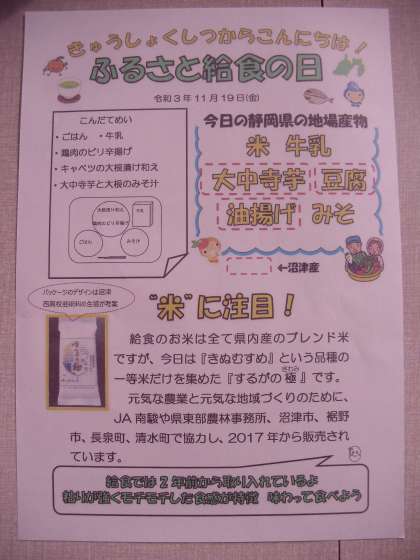 きゅうしょくしつからこんにちは！
ふるさと給食の日
令和３年１１月１９日(金)
こんだてめい
・ごはん　・牛乳
・鶏肉のピリ辛揚げ
・キャベツの大根漬け和え
・大中寺芋と大根のみそ汁
大根漬け和え
牛乳
鶏肉のピリ辛揚げ
ごはん
みそ汁
今日の静岡県の地場産物
米　牛乳
大中寺芋　豆腐
油揚げ　みそ
←沼津産
パッケージのデザインは沼津
西高校芸術科の生徒が考案
“米”に注目！
給食のお米は全て県内産のブレンド米
ですが、今日は『きぬむすめ』という品種の
一等米だけを集めた『するがの極』です。
きわみ
元気な農業と元気な地域づくりのために、
JA南駿や県東部農林事務所、沼津市、裾野
市、長泉町、清水町で協力し、2017年から販売され
ています。
給食では２年前から取り入れているよ
粘りが強くモチモチした食感が特徴　味わって食べよう